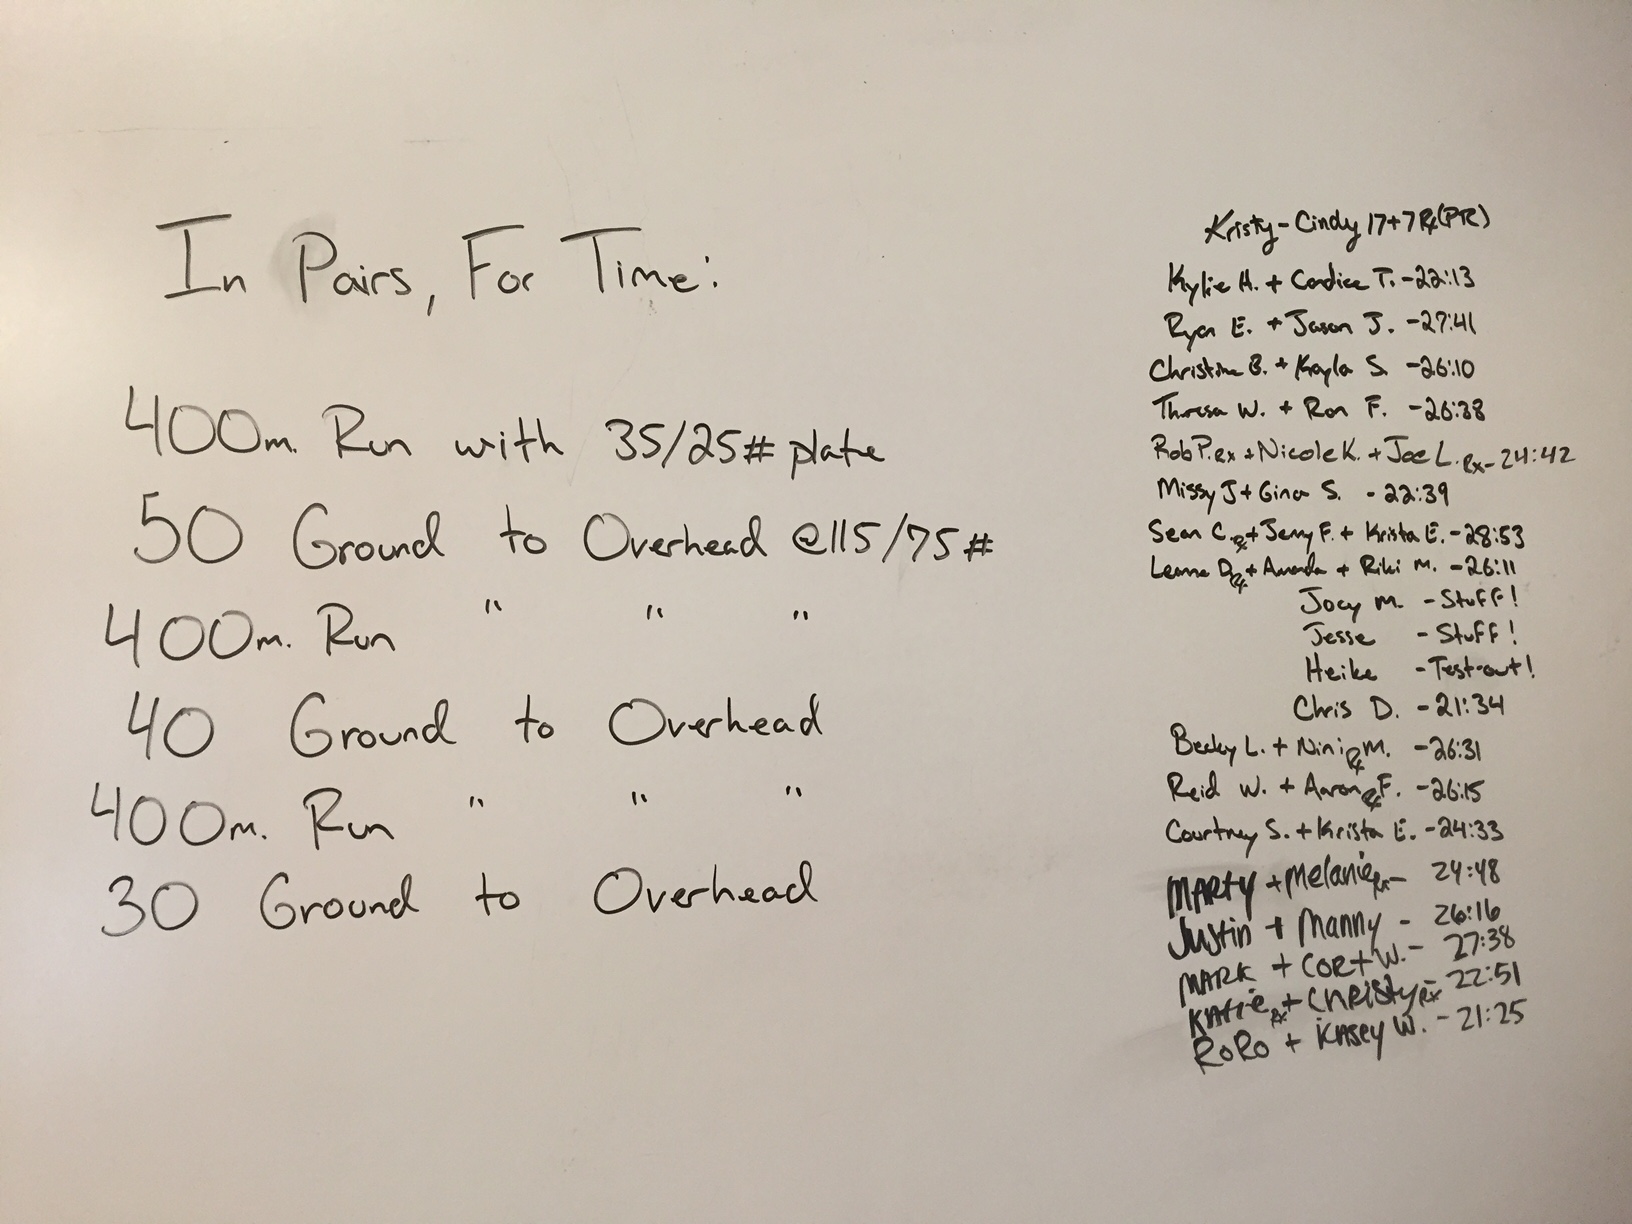 In Pairs, For Time:
400m. Run with 35/25# plate
50 Ground to Overhead @115/75#
400m. Run " " "
40 Ground to Overhead
400m. Run " " "
30 Ground to Overhead
Kristy-Cindy 17+7 Rx(PR)
Kylie H. + Candice T. -22:13
Ryan E. + Jason J. -27:41
Christina B. + Kayla S. -26:10
Theresa W. + Ron F. -26:38
Rob P. Rx + Nicole K. + Joe L. Rx- 24:42
Missy J + Gina S. - 22:39
Sean C. Rx + Jenny F. + Krista E. -28:53
Leanna D. Rx + Amanda + Riki M. -26:11
Joey M. -Stuff!
Jesse -Stuff!
Heike -Test-out!
Chris D. -21:34
Becky L. + Nini Rx M. -26:31
Reid W. + Aaron Rx F. -26:15
Courtney S. + Krista E. -24:33
MARTY + Melanie Rx- 24:48
Justin + Manny - 26:16
MARK + CORT W. - 27:38
KATIE Rx + CHRISTY Rx - 22:51
RoRo + KASEY W. - 21:25